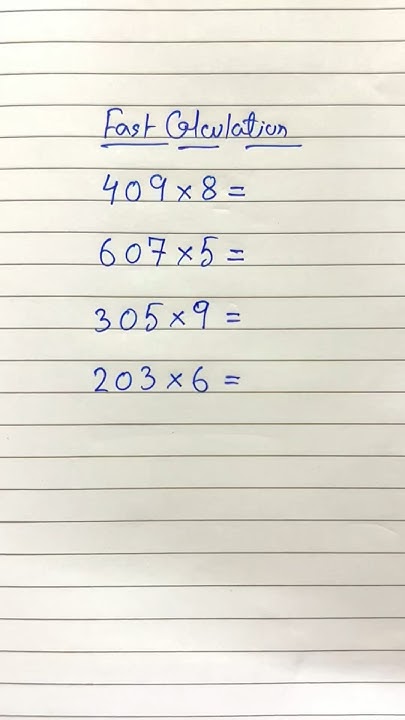 Fast Calculation
409×8=
607×5=
305×9=
203×6=